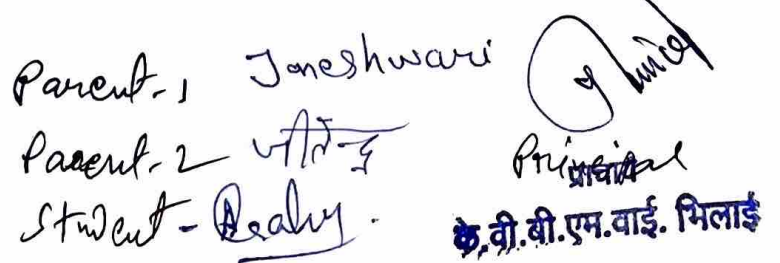 Parent-1 Joneshwari
Parent-2 जीतेन्द्र
Student -
Principal
प्राचार्य
के.वी.बी.एम.वाई. भिलाई